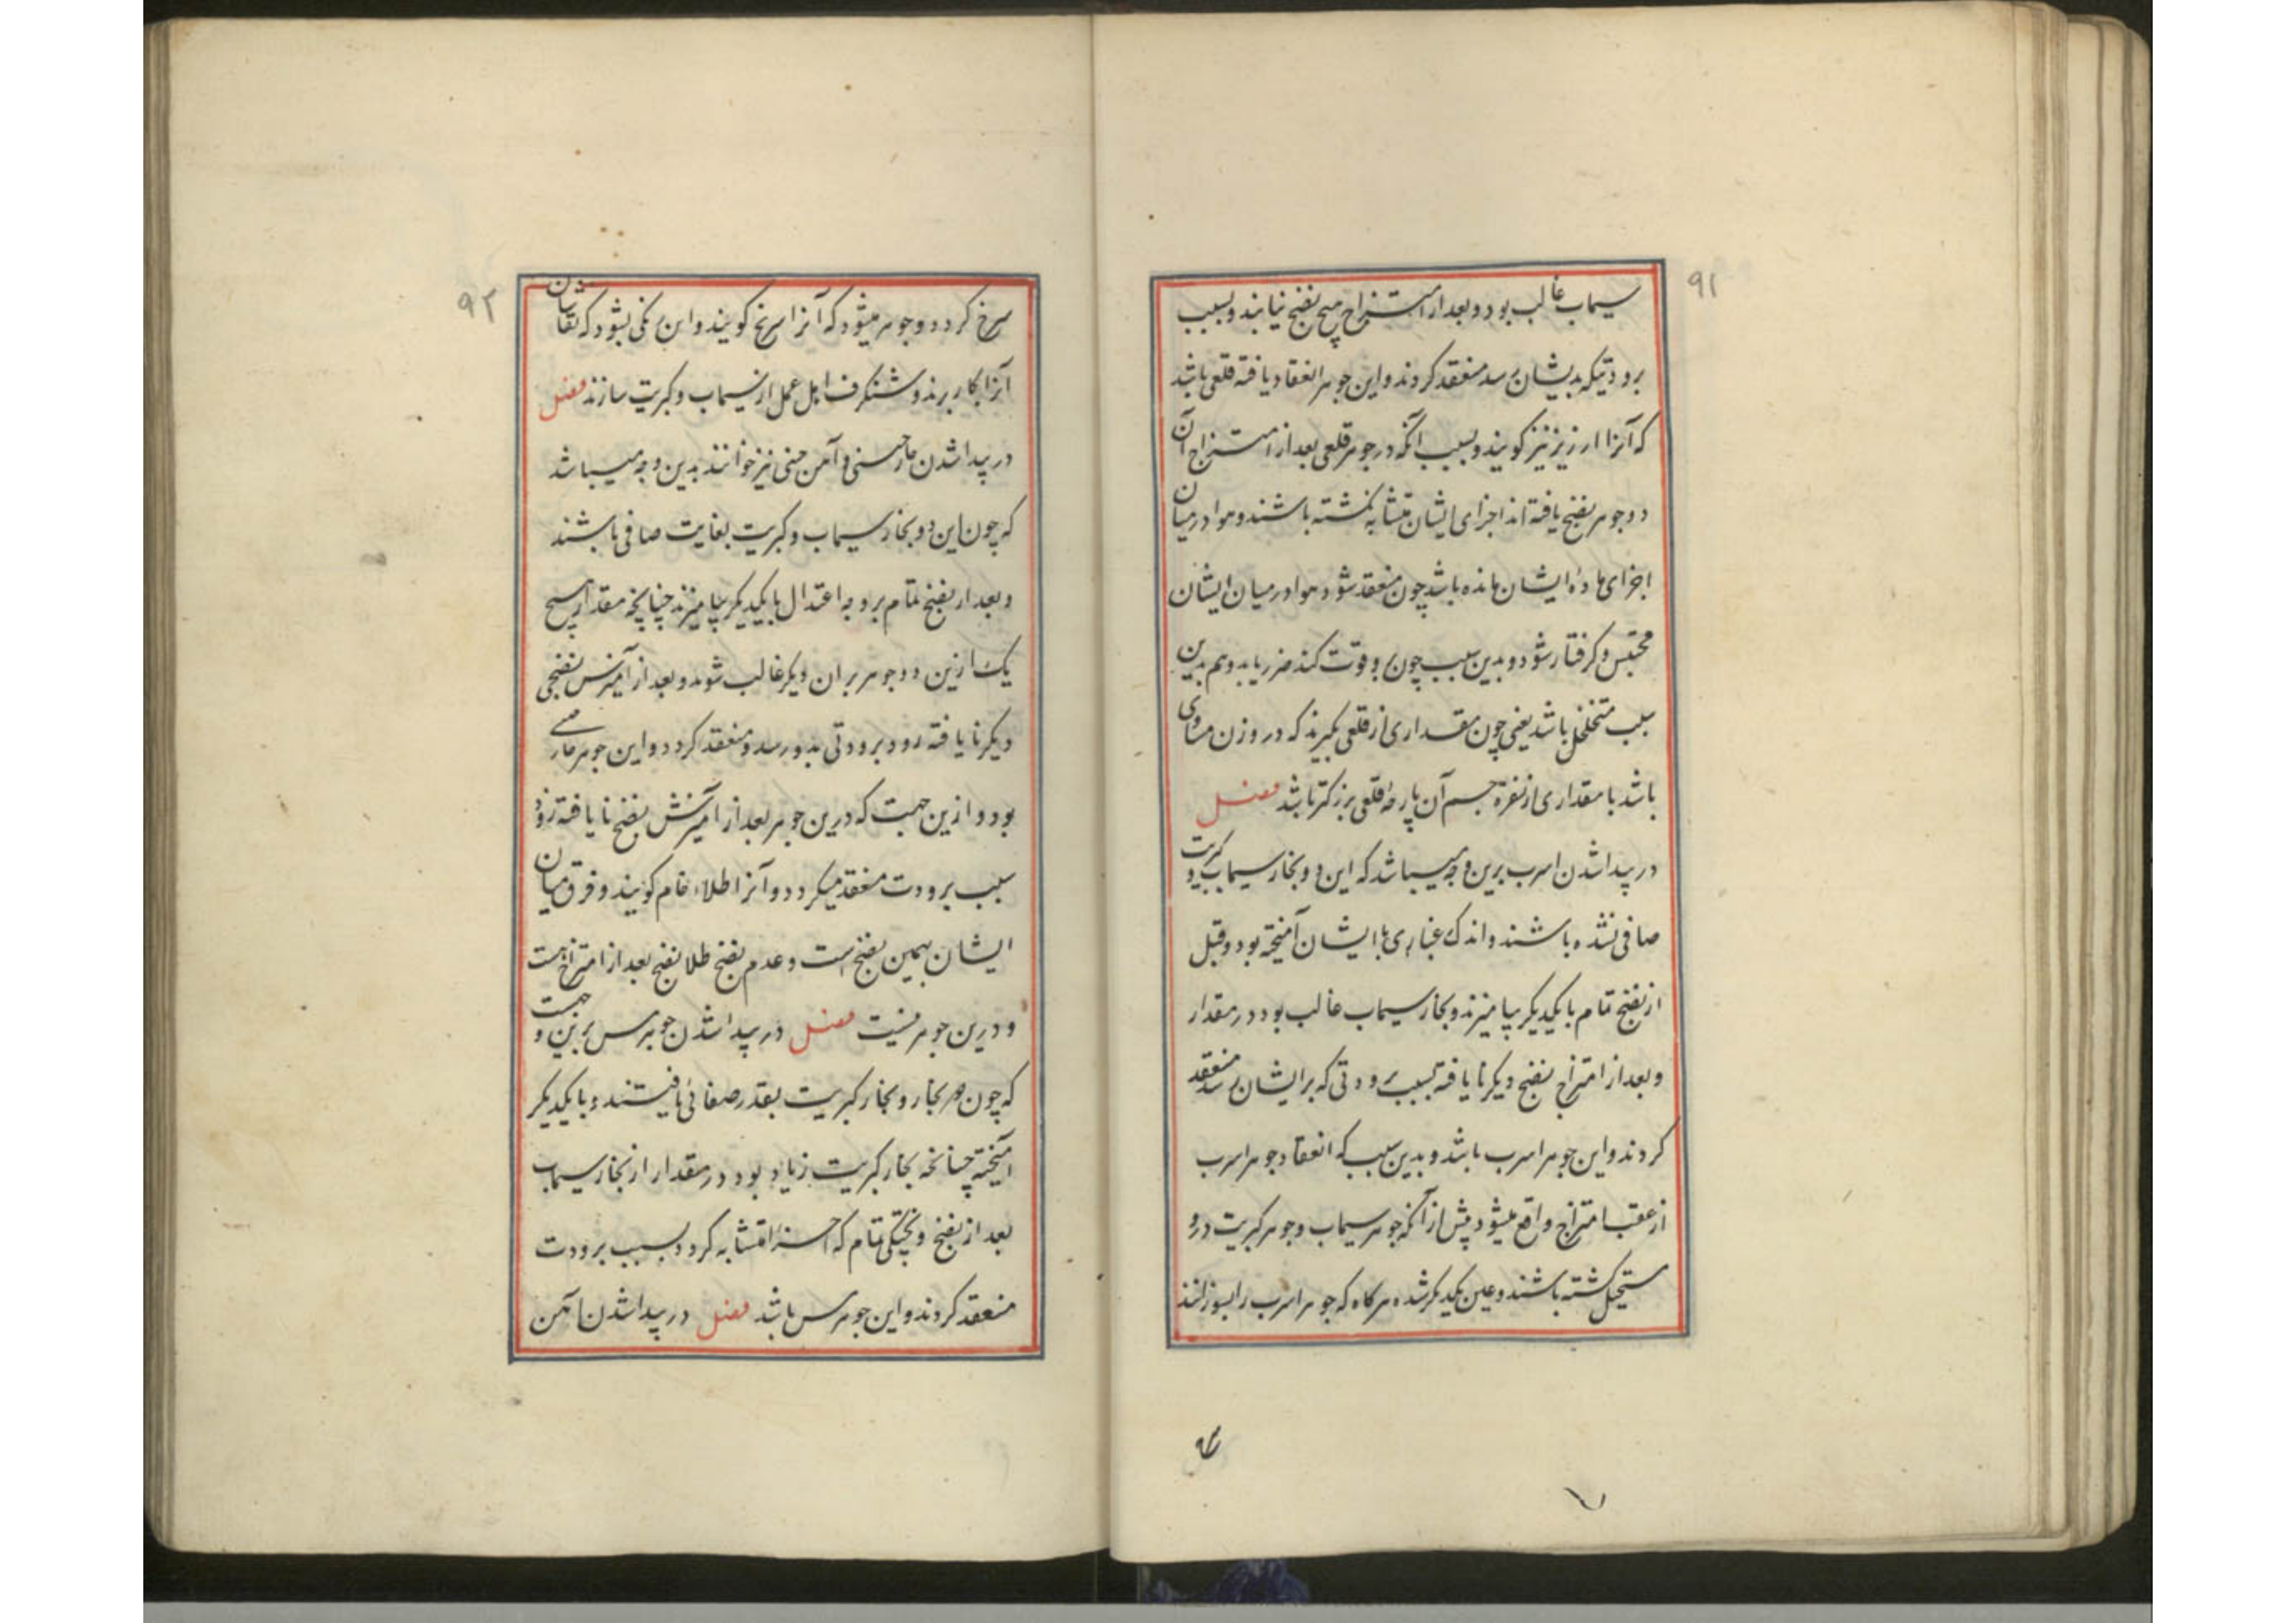 ۹۱
سیماب غالب بود و بعد از امتزاج هیچ نضج نیابند و بسبب
برودتیکه بدیشان رسد منعقد کردند و این جوهر انعقاد یافته قلعی باشد
که آنرا ارزیز نیز کویند و بسبب آنکه در جوهر قلعی بعد از امتزاج آن
دو جوهر نضج یافته اند اجزای ایشان متشابه نکشته باشند و هوا در میان
اجزای ماده ایشان مانده باشد چون منعقد شود هوا در میان ایشان
محتبس و کرفتار شود و بدین سبب چون برو قوت کنند ضرر یابد و هم بدین
سبب متخلخل باشد یعنی چون مقداری از قلعی بکیرند که در وزن مساوی
باشد با مقداری از نقره جسم آن پارهٔ قلعی بزرکتر باشد فصل
در پیدا شدن اسرب برین وجه میباشد که این دو بخار سیماب و کبریت
صافی نشده باشند و اندک غباری با ایشان آمیخته بود و قبل
از نضج تمام با یکدیکر بیامیزند و بخار سیماب غالب بود در مقدار
و بعد از امتزاج نضج دیکر نایافته بسبب برودتی که بر ایشان رسد منعقد
کردند و این جوهر اسرب باشد و بدین سبب که انعقاد جوهر اسرب
از عقب امتزاج واقع میشود پیش از آنکه جوهر سیماب و جوهر کبریت درو
مستحیل کشته باشند و عین یکدیکر شده هرکاه که جوهر اسرب را بسوزانند
۹۲
سرخ کردد و جوهر میشود که آنرا سرنج کویند و این رنکی بشود که نقاشان
آنرا بکار برند و شنکرف اهل عمل از سیماب و کبریت سازند فصل
در پیدا شدن خارصینی و آهن چینی نیز خوانند بدین وجه میباشد
که چون این دو بخار سیماب و کبریت بغایت صافی باشند
و بعد از نضج تمام بر وجه اعتدال با یکدیکر بیامیزند چنانچه مقدار هیچ
یک ازین دو جوهر بر ان دیکر غالب شود و بعد از آمیزش نضجی
دیکر نایافته زود برودتی بدو رسد و منعقد کردد و این جوهر خارصینی
بود و ازین جهت که درین جوهر بعد از آمیزش نضج نایافته زود
بسبب برودت منعقد میکردد و آنرا طلاء خام کویند و فرق میان
ایشان بهمین نضج است و عدم نضج طلا نضج بعد از امتزاج هست
و درین جوهر نیست فصل در پیدا شدن جوهر مس برین وجهست
که چون هر بخار و بخار کبریت بقدر صفائی یافیستند و با یکدیکر
آمیخته چنانچه بخار کبریت زیاد بود در مقدار از بخار سیماب
بعد از نضج و پختکی تمام که اجزا متشابه کردد بسبب برودت
منعقد کردند و این جوهر مس باشد فصل در پیدا شدن آهن